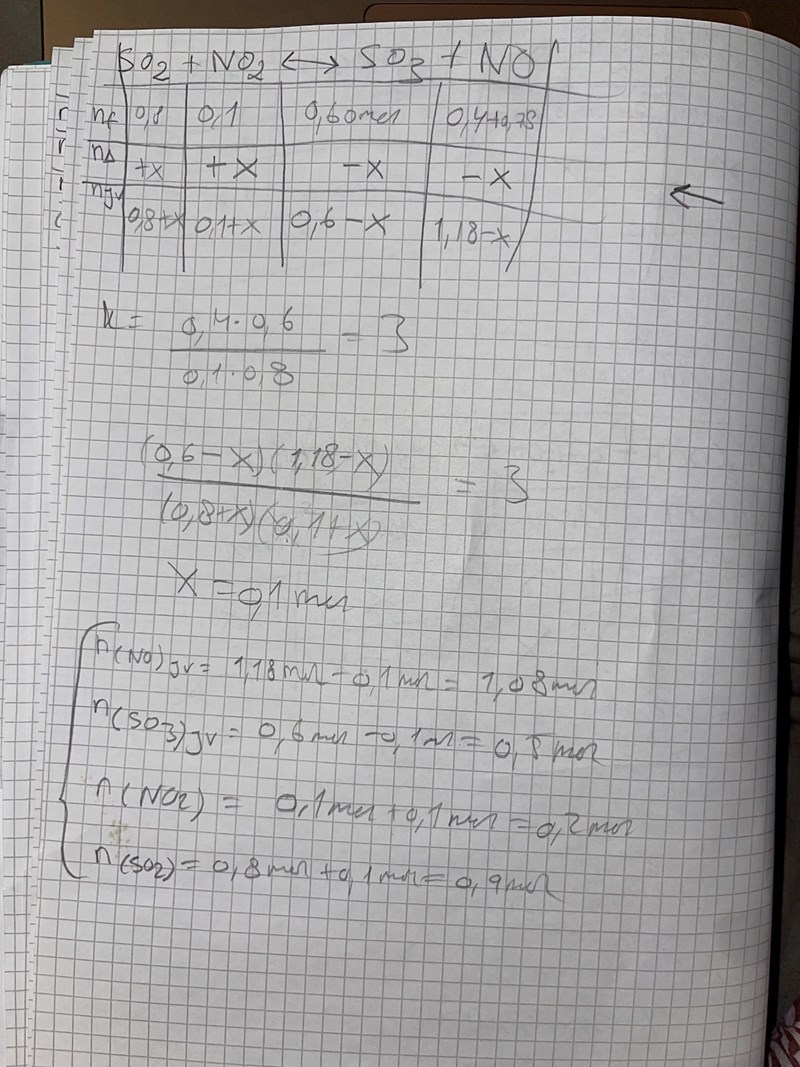 SO2 + NO2 <-> SO3 + NO
nf 0,8 0,1 0,60 mol 0,4+0,78
nΔ +x +x -x -x
njv 0,8+x 0,1+x 0,6-x 1,18-x
←
k = 0,4·0,6 / 0,1·0,8 = 3
(0,6-x)(1,18-x) / (0,8+x)(0,1+x) = 3
x = 0,1 mol
n(NO)jv = 1,18 mol - 0,1 mol = 1,08 mol
n(SO3)jv = 0,6 mol - 0,1 m = 0,5 mol
n(NO2) = 0,1 mol + 0,1 mol = 0,2 mol
n(SO2) = 0,8 mol + 0,1 mol = 0,9 mol